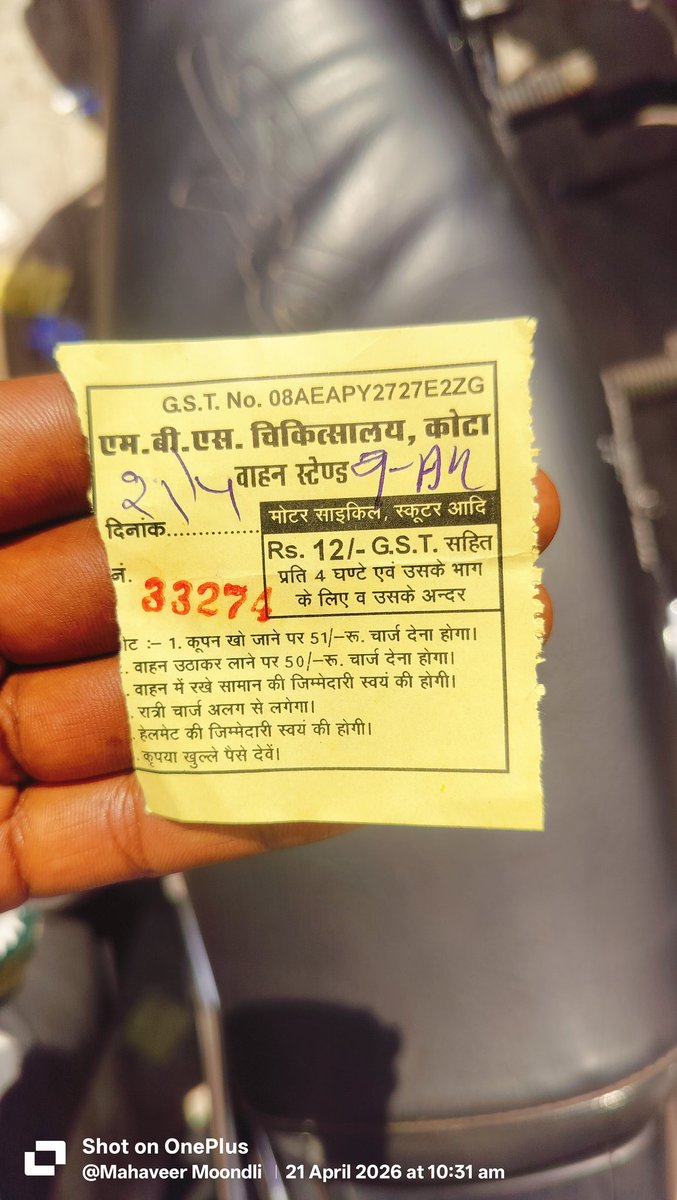 G.S.T. No. 08AEAPY2727E2ZG
एम.बी.एस. चिकित्सालय, कोटा
21/4 वाहन स्टेण्ड 9-AM
दिनांक..............
मोटर साइकिल, स्कूटर आदि
Rs. 12/- G.S.T. सहित
प्रति 4 घण्टे एवं उसके भाग
के लिए व उसके अन्दर
नं. 33274
ोट :- 1. कूपन खो जाने पर 51/-रू. चार्ज देना होगा।
. वाहन उठाकर लाने पर 50/-रू. चार्ज देना होगा।
. वाहन में रखे सामान की जिम्मेदारी स्वयं की होगी।
. रात्री चार्ज अलग से लगेगा।
. हेलमेट की जिम्मेदारी स्वयं की होगी।
. कृपया खुल्ले पैसे देवें।
Shot on OnePlus
@Mahaveer Moondli | 21 April 2026 at 10:31 am